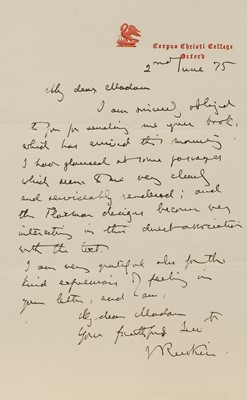 Corpus Christi College
Oxford
2nd June 75
My dear Madam
I am sincerely obliged
to you for sending me your book,
which has arrived this morning
I have glanced at some passages
which seem to me very clearly
and serviceably rendered; and
the Flaxman designs become very
interesting in this direct association
with the text
I am very grateful also for the
kind expressions of feeling in
your letter, and am,
My dear Madam
Your faithful Servt
J Ruskin